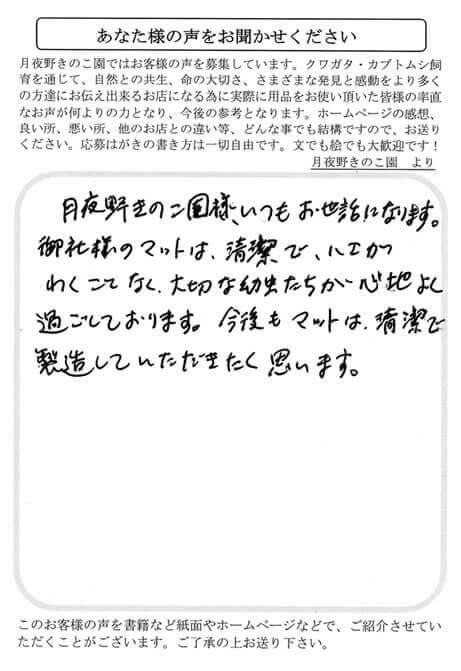 あなた様の声をお聞かせください
月夜野きのこ園ではお客様の声を募集しています。クワガタ・カブトムシ飼
育を通じて、自然との共生、命の大切さ、さまざまな発見と感動をより多く
の方達にお伝え出来るお店になる為に実際に用品をお使い頂いた皆様の率直
なお声が何よりの力となり、今後の参考となります。ホームページの感想、
良い所、悪い所、他のお店との違い等、どんな事でも結構ですので、お送り
ください。応募はがきの書き方は一切自由です。文でも絵でも大歓迎です！
月夜野きのこ園 より
月夜野きのこ園様、いつもお世話になります。
御社様のマットは、清潔で、ハエが
わくことなく、大切な幼虫たちが心地よく
過ごしております。今後もマットは、清潔で
製造していただきたく思います。
このお客様の声を書籍など紙面やホームページなどで、ご紹介させてい
ただくことがございます。ご了承の上お送り下さい。